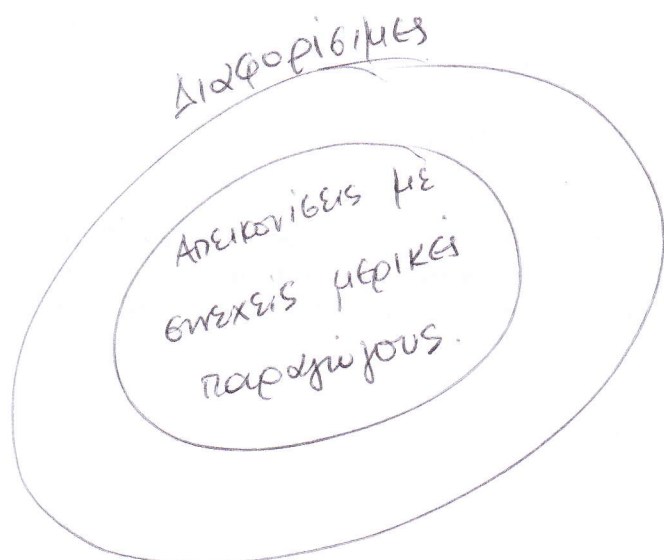 Διαφορίσιμες
Απεικονίσεις με
συνεχείς μερικές
παραγώγους.